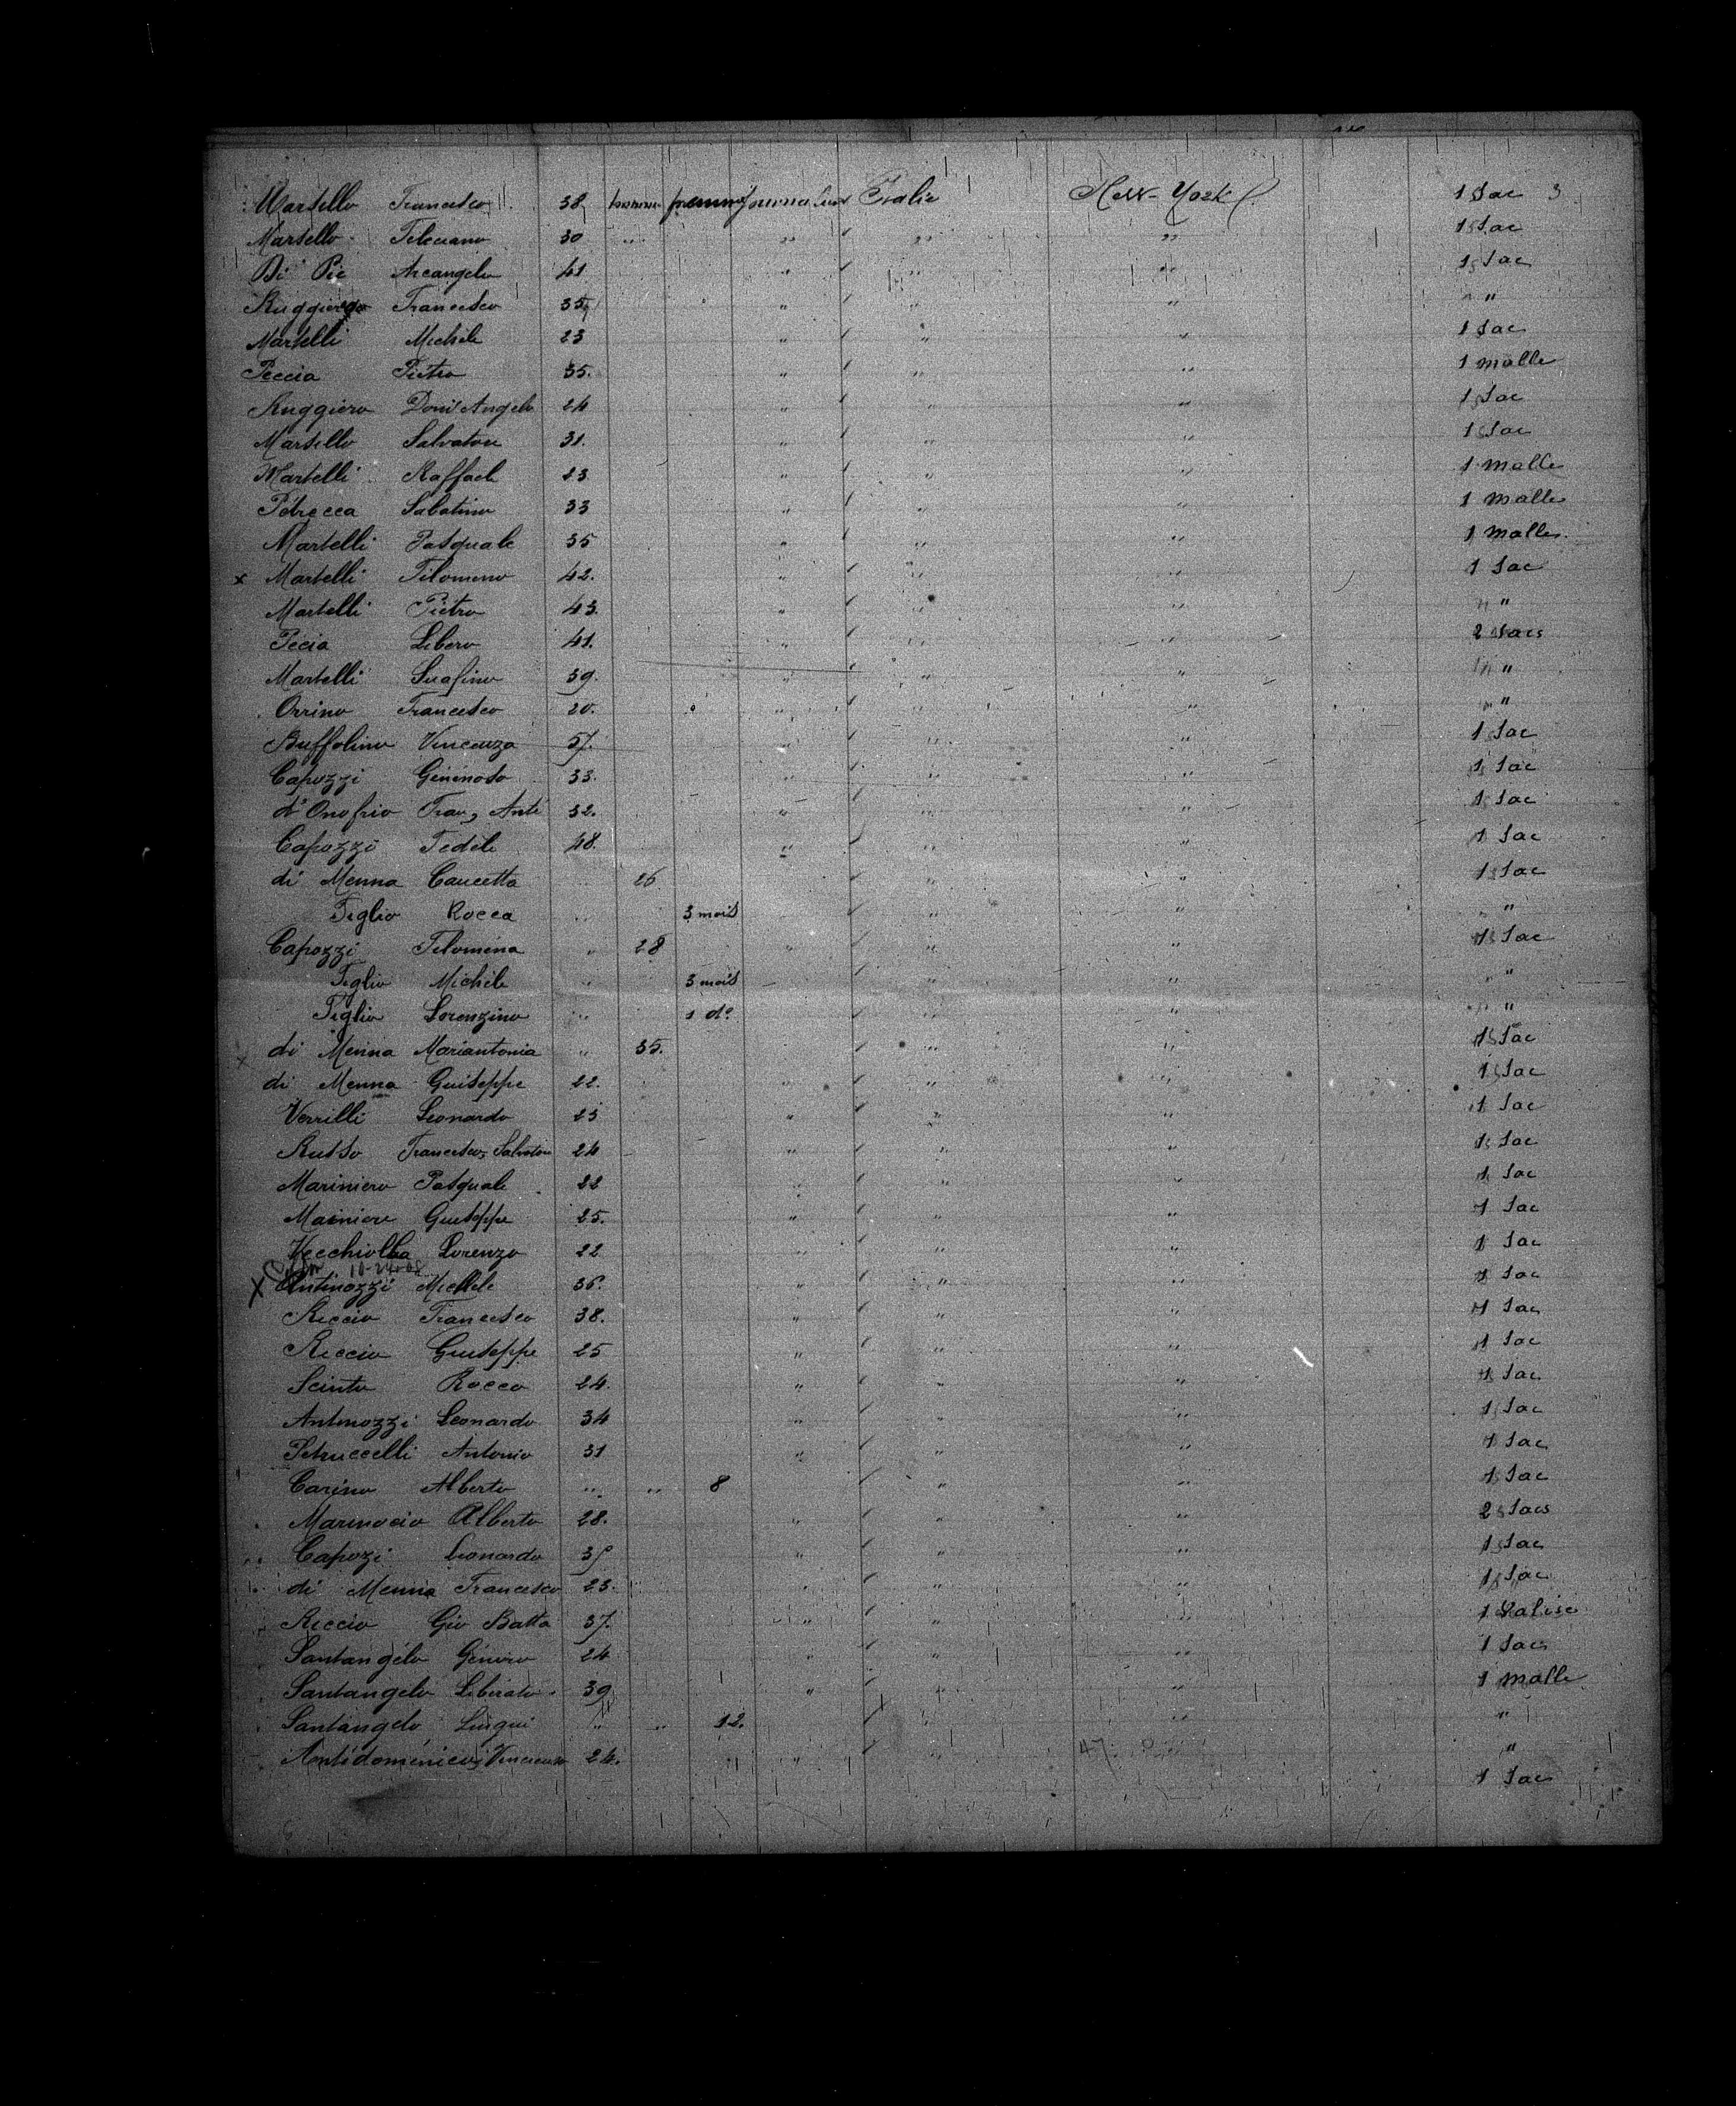 Martello Francesco 38 Italie New-York 1 Sac 3
Martello Feleciano 30 " " " 1 Sac
Di Pie Arcangelo 41 " " " 1 Sac
Ruggiero Francesco 35 " " " "
Martelli Michele 23 " " " 1 Sac
Peccia Pietro 35. " " " 1 malle
Ruggiero Doni Angelo 24 " " " 1 Sac
Martello Salvatore 31. " " " 1 Sac
Martelli Raffaele 23 " " " 1 malle
Petrecca Sabatino 33 " " " 1 malle
Martelli Pasquale 35 " " " 1 malle
x Martelli Filomeno 42. " " " 1 Sac
Martelli Pietro 43. " " " "
Pecia Libero 41. " " " 2 Sacs
Martelli Serafino 39. " " " "
Orrino Francesco 20. " " " "
Buffolino Vincenzo 57. " " " 1 Sac
Capozzi 33. " " " 1 Sac
d'Onofrio Fran, Anto 32. " " " 1 Sac
Capozzi Fedele 48. " " " 1 Sac
di Menna Concetta 26 " " 1 Sac
Figlio Rocca " 3 mois " " "
Capozzi Filomena " 28 " " " 1 Sac
Figlio Michele " 3 mois " " "
Figlio Lorenzino " 1 do " " "
di Menna Mariantonia " 35. " " 1 Sac
di Menna Guiseppe 22. " " " 1 Sac
Verrilli Leonardo 23 " " " 1 Sac
Russo Francesco, Salvatore 24 " " " 1 Sac
Mariniero Pasquale 22 " " " 1 Sac
Mainiere Guiseppe 25. " " " 1 Sac
Vecchiolla Lorenzo 22 " " " 1 Sac
10-24-08
X Antinozzi Michele 36. " " " 1 Sac
Riccio Francesco 38. " " " 1 Sac
Riccio Guiseppe 25 " " " 1 Sac
Scinto Rocco 24. " " " 1 Sac
Antinozzi Leonardo 34 " " " 1 Sac
Petruccelli Antonio 31 " " " 1 Sac
Carino Alberto " " 8 " " 1 Sac
Marinocio Alberto 28. " " " 2 Sacs
Capozi Leonardo " " " 1 Sac
di Menna Francesco 23. " " " 1 Sac
Riccio Gio Batta 37. " " " 1 Valise
Santangelo Genaro 24 " " " 1 Sac
Santangelo Liberato 39 " " " 1 malle
Santangelo Luigui " " 12. " " "
Antidomenico, Vincenzo 24. " " 47 "
1 Sac